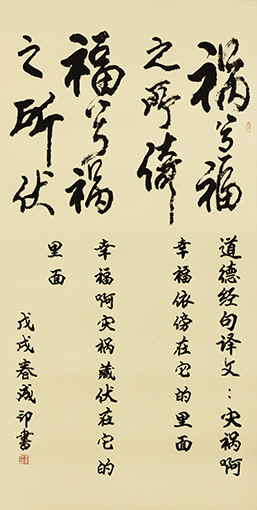 祸兮福
之所倚
福兮祸
之所伏
道德经句译文：灾祸啊
幸福依傍在它的里面
幸福啊灾祸藏伏在它的
里面
戊戌春成印书